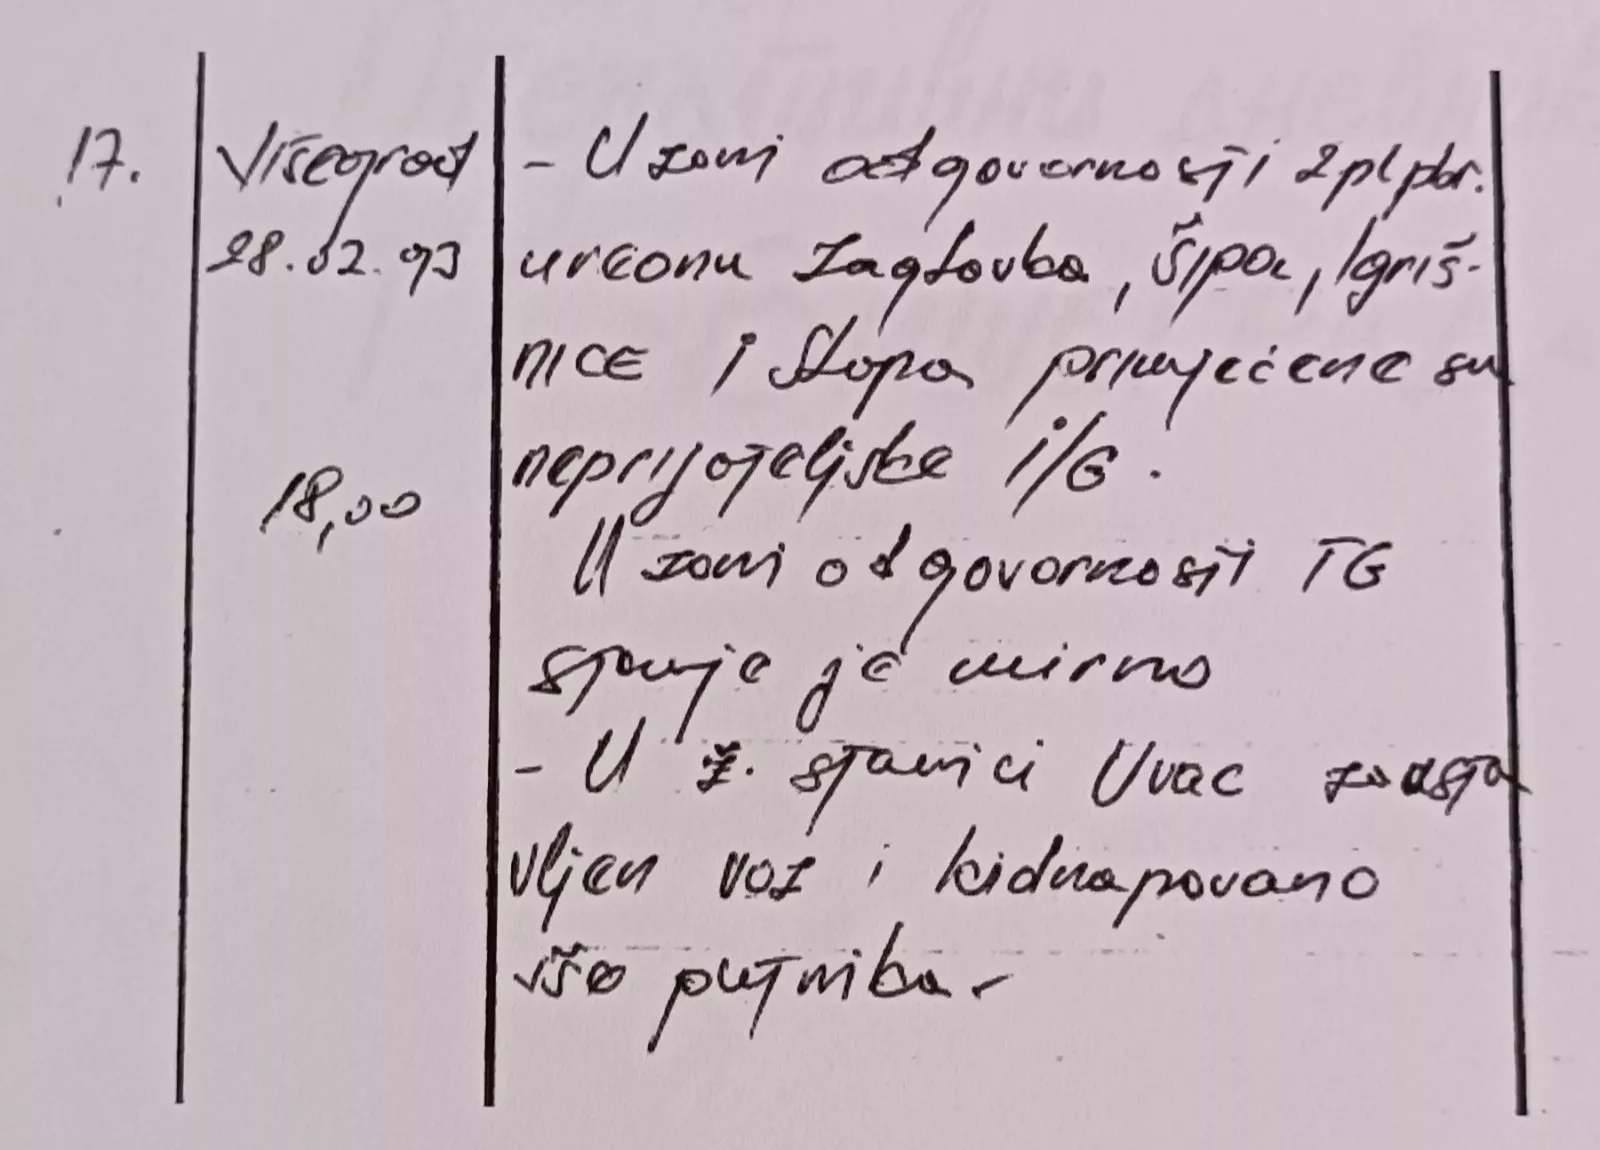 17. Višegrad - U zoni odgovornosti 2plpbr.
28.02.93 u reonu Zaglavka, Šipa, Igriš-
nice i Stopa primjećene su
neprijateljske i/G.
18,00
U zoni odgovornosti TG
stanje je mirno
- U ž. stanici Uvac zausta
vljen voz i kidnapovano
više putnika-